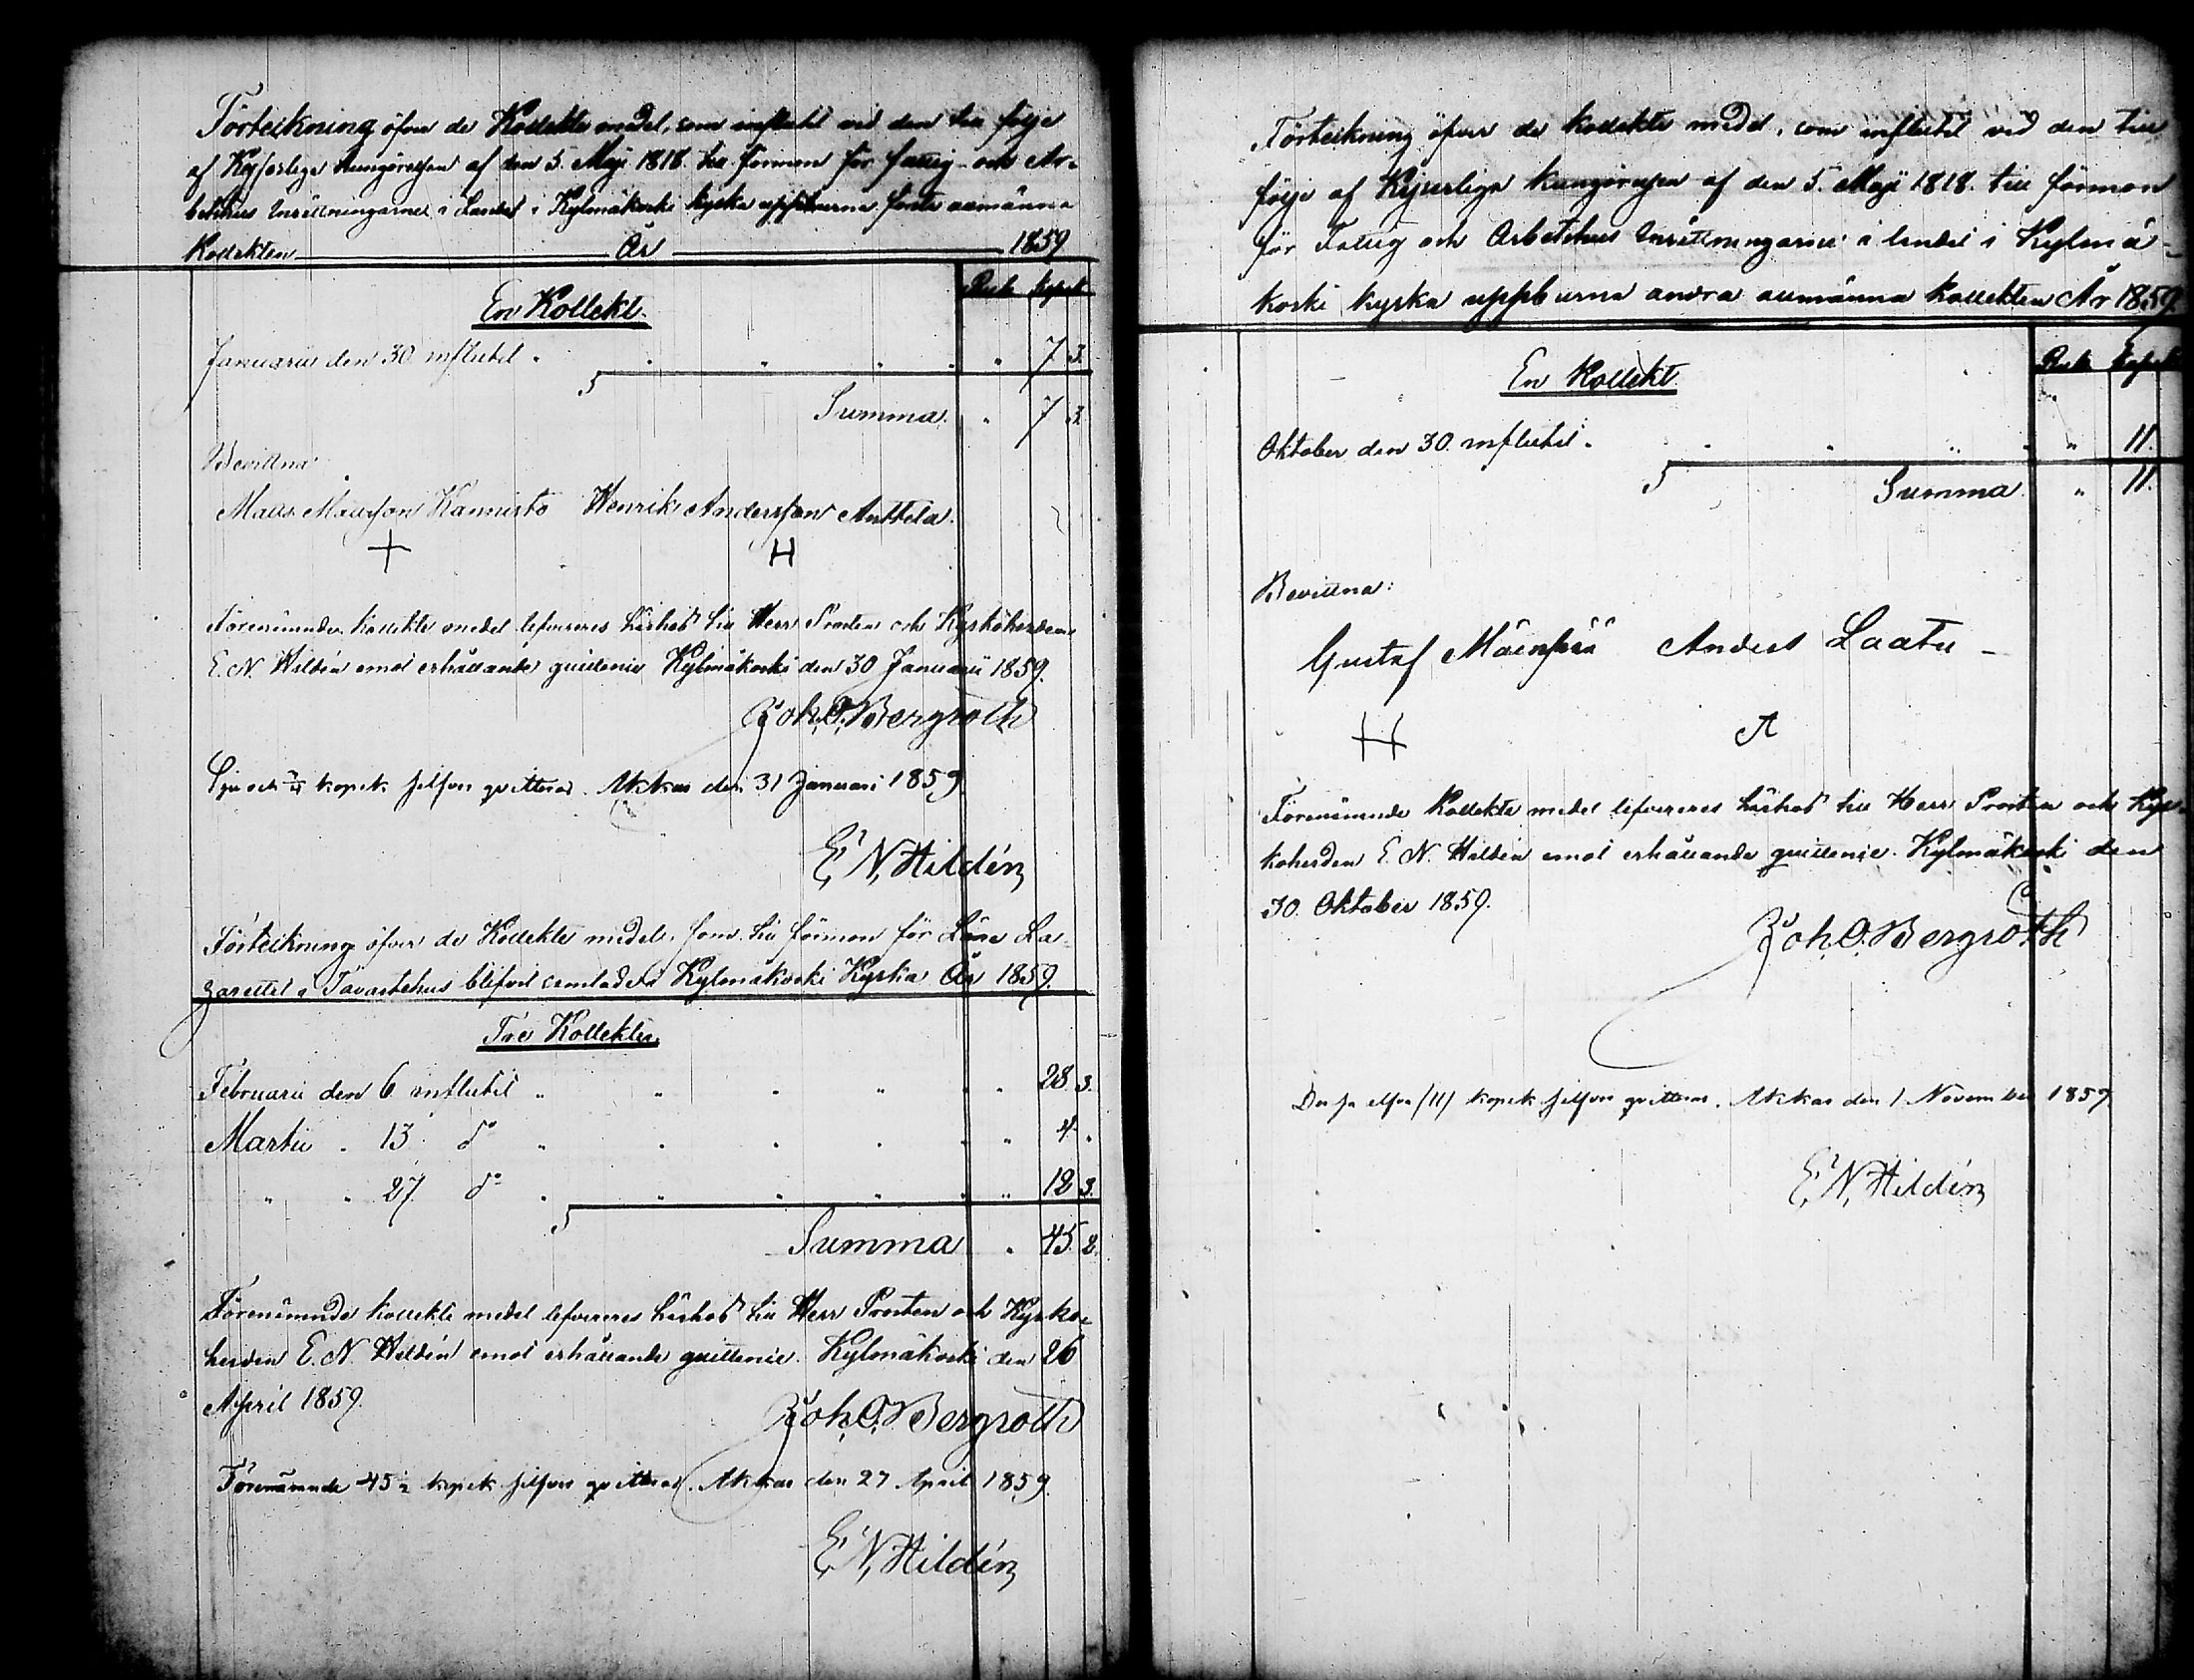 Förteckning öfver de Kollekte medel, som influtit vid den till följe
af Kejserliga Kungörelsen af den 5. Maji 1818 till förmon för fattig- och Ar-
betshus Inrättningarne i Landet i Kylmäkoski kyrka uppburna första allmänna
Kollekten År 1859
Rub. Kopek
En Kollekt.
Januarii den 30 influtit " " " " " 7 3.
Summa. " 7 3.
Bevittna
Matts Mattsson Kannisto Henrik Andersson Anttila.
+ H
Förenämnde Kollekte medel lefvereres härhos till Herr Prosten och Kyrkoherden
E. N. Hildén emot erhållande quittence Kylmäkoski den 30 Januarii 1859.
Joh. O. Bergroth
Sju och 3/4 kopek silfver qvitteras. Akkas den 31 Januari 1859
E. N. Hildén
Förteckning öfver de Kollekte medel, som till förmon för Läne La-
zarettet i Tavastehus blifvit samlade i Kylmäkoski Kyrka År 1859.
Tre Kollekter.
Februarii den 6 influtit " " " " " " 28 3.
Martii " 13. do " " " " " 4 "
" " 27. do " " " " " " 12 3.
Summa " 45 2.
Förenämnde Kollekte medel lefvereres härhos till Herr Prosten och Kyrko-
herden E. N. Hildén emot erhållande quittence. Kylmäkoski den 26
April 1859.
Joh. O. Bergroth
Förenämnde 45 1/2 kopek silfver qvitteras. Akkas den 27 April 1859.
E. N. Hildén
Förteckning öfver de kollekte medel, som influtit vid den till
följe af Kejserliga kungörelsen af den 5. Maji 1818. till förmon
för Fattig och Arbetshus Inrättningarne i landet i Kylmä-
koski kyrka uppburna andra allmänna kollekten År 1859.
Rub. Kopek
En Kollekt
Oktober den 30. influtit " " " " " " 11.
Summa " 11.
Bevittna:
Gustaf Mäenpää Anders Laatu
H A
Förenämnde Kollekte medel lefvereres härhos till Herr Prosten och Kyr-
koherden E. N. Hildén emot erhållande quittence. Kylmäkoski den
30. Oktober 1859.
Joh. O. Bergroth
Dessa elfva (11) kopek silfver qvitteras. Akkas den 1 November 1859
E. N. Hildén